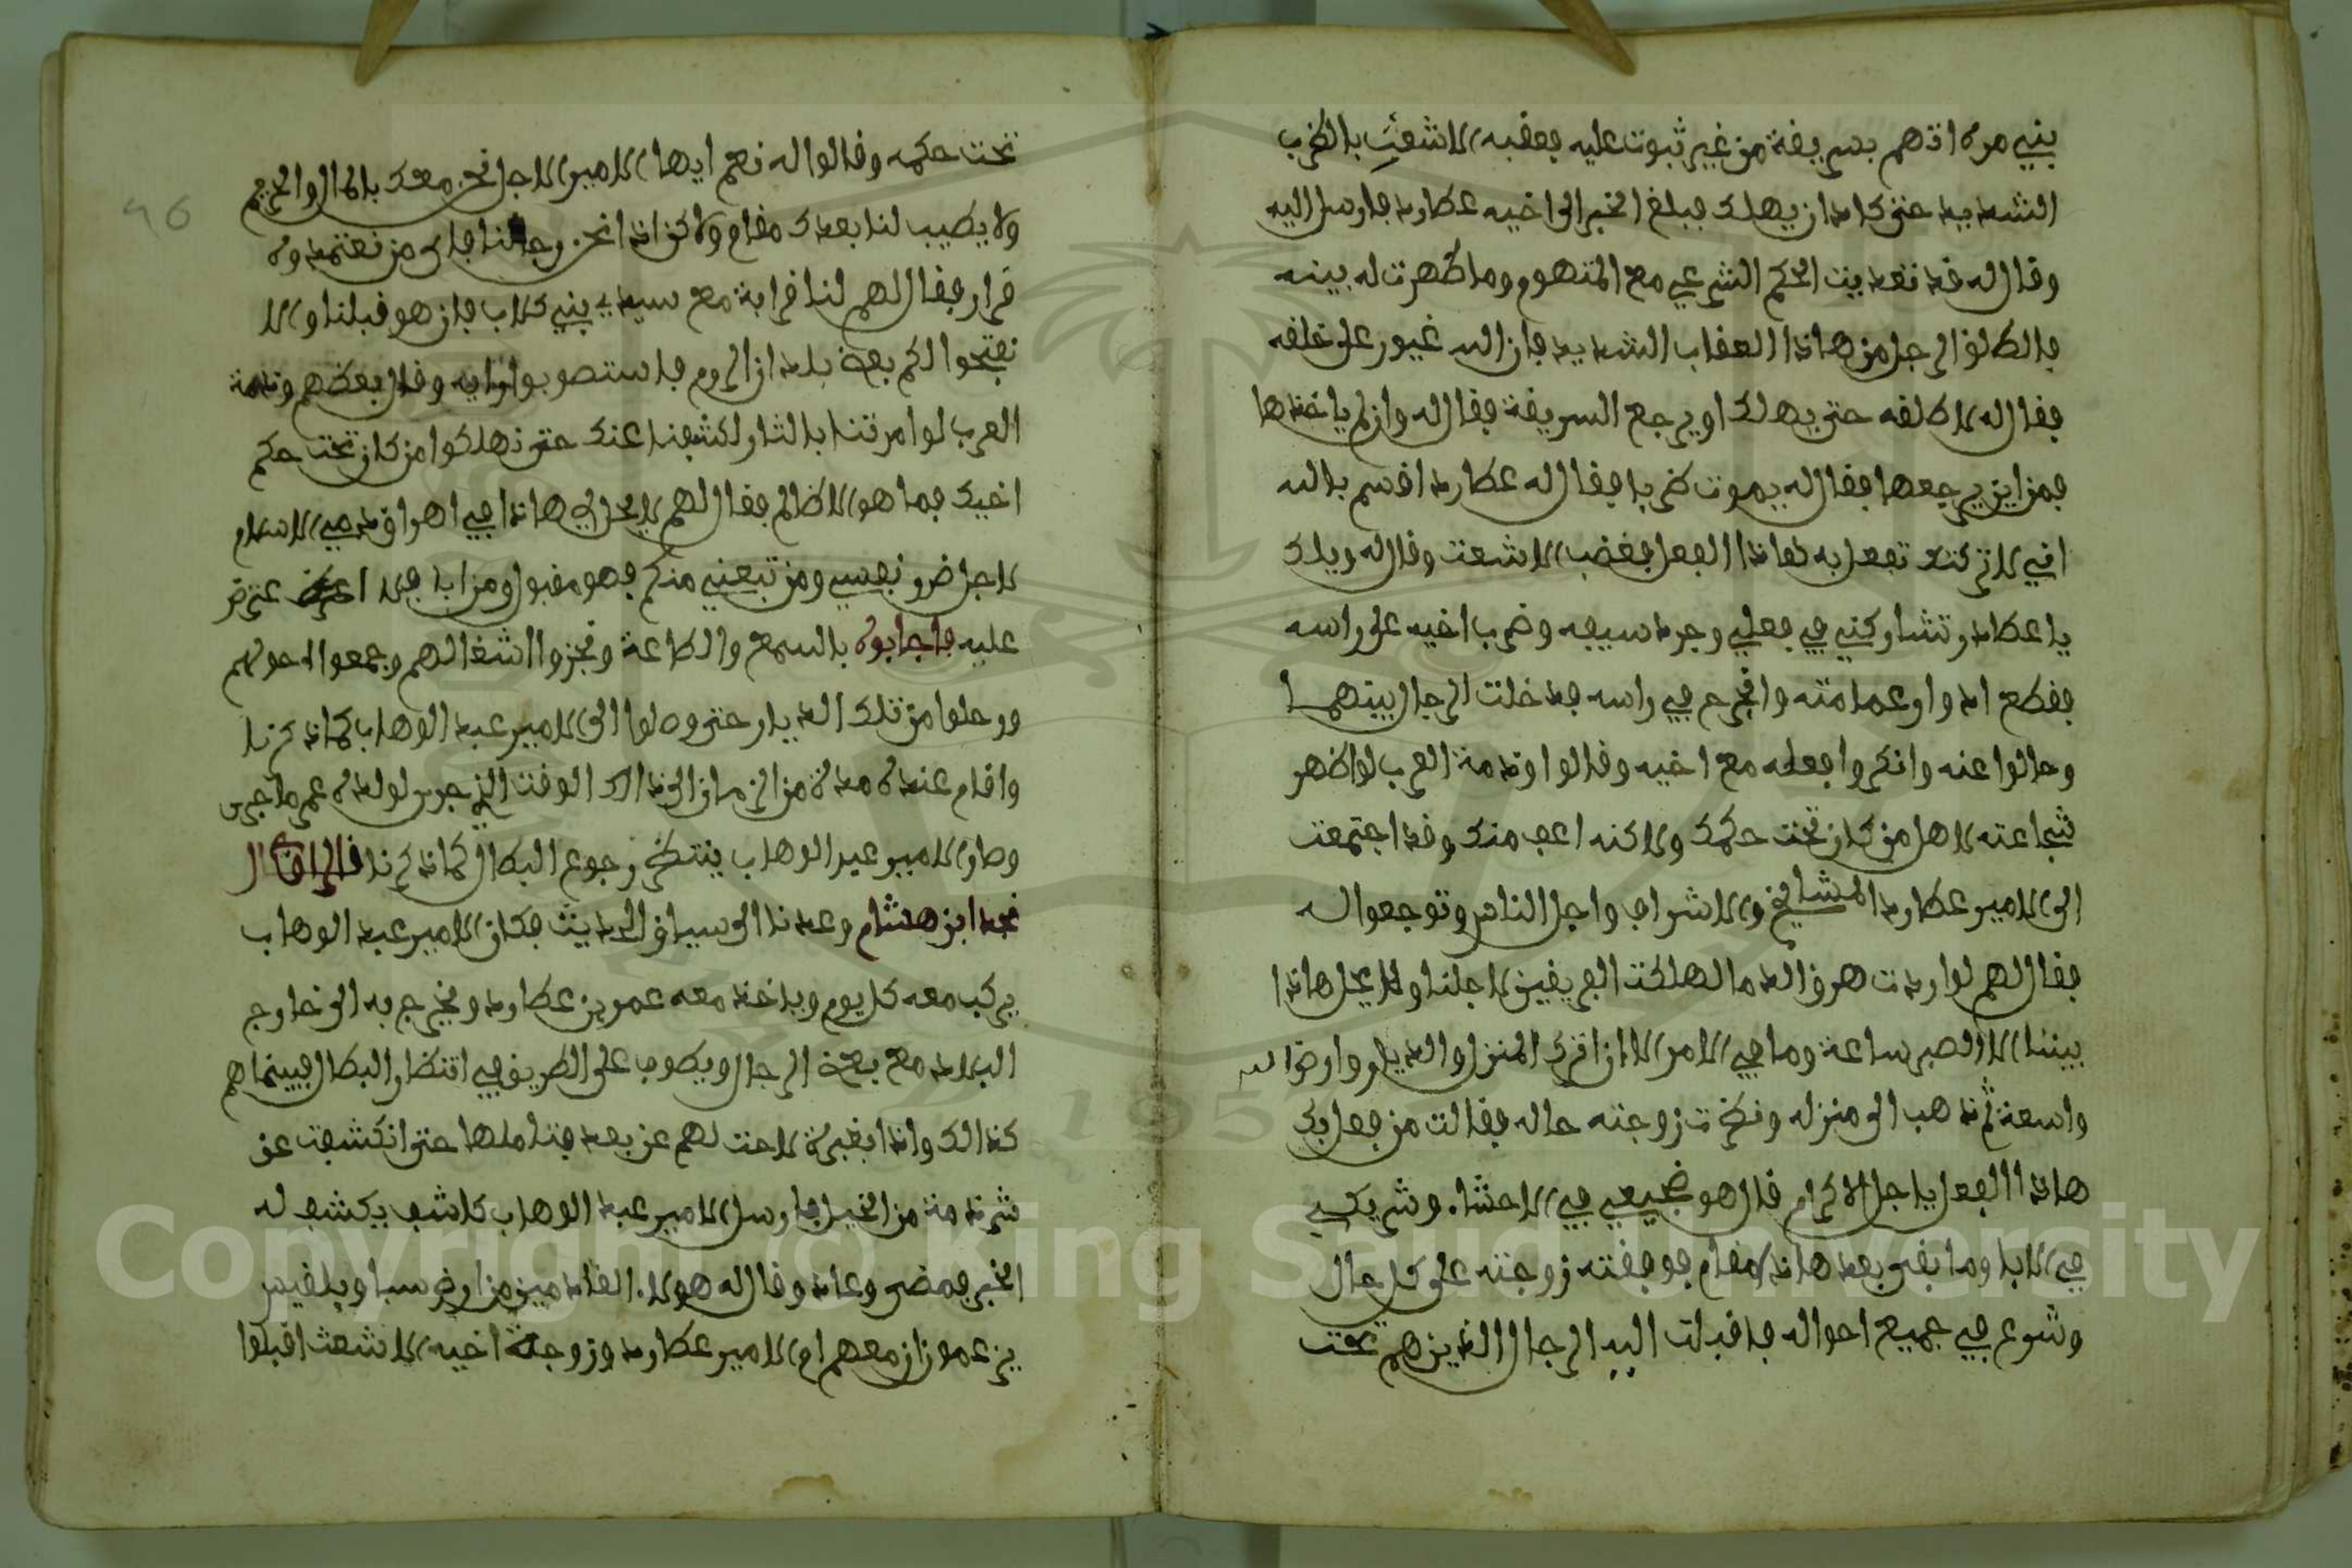 بني مره اتهم بسريفة من غير ثبوت عليه فعقبه الاشعث بالضرب
الشديد حتى كاد ان يهلك فبلغ الخبر الى اخيه عطارد فارسل اليه
وقال له قد نفديت الحكم الشرعي مع المتهوم وما ظهرت له بينه
فاطلق الرجل من هاذا العقاب الشديد فان الله غيور على خلقه
فقال له لا نطلقه حتى يهلك او يرجع السريفة فقال له وان لم ياخذها
فمن اين يرجعها فقال له يموت ضربا فقال له عطارد اقسم بالله
اني لا تركتك تفعل به هاذا الفعل فغضب الاشعث وقال له ويلك
يا عطارد وتشاركني في فعلي وجرد سيفه وضرب اخيه على راسه
فقطع ادوار عمامته وانجرح في راسه فدخلت الرجال بينهما
وحالوا عنه وانكروا فعله مع اخيه وقالوا وذمة العرب لو اظهر
شجاعته لاهل من كان تحت حكمك ولاكنه اعف منك وقد اجتمعت
الى الامير عطارد المشايخ والاشراف واجل الناس وتوجعوا له
فقال لهم لو اردت هرق الدما لهلكت الفريقين لاجلنا ولا يحل هاذا
بيننا الا الصبر ساعة وما في الامر الا ان اترك المنزل والديار وارض الله
واسعة ثم ذهب الى منزله ونظرت زوجته حاله فقالت من فعل بك
هاذا الفعل يا جل الاكرام قال هو ضجيعي في الاحشاء وشريكي
في الابا وما بقى بعد هاذا مقام فوفقته زوجته على كل حال
وشوع في جميع احواله فاقبلت اليه الرجال الذين هم تحت
تحت حكمه وقالوا له نعم ايها الامير الاجل نحن معك بالمال والحريم
ولا يطيب لنا بعدك مقام ولاكن اذا نحن رحلنا فالى من نعتمدوه
قرار فقال لهم لنا قرابة مع سيد بني كلاب فان هو قبلنا والا
نفتحوا لكم بعض بلدان الروم فاستصوبوا رايه وقال بعضهم وذمة
العرب لو امرتنا بالثار لكشفنا عنك حتى نهلكوا من كان تحت حكم
اخيك فما هو الا ظالم فقال لهم لا يحل لي هاذا في اهراق دمي الاسلام
لاجل ضرو نفسي ومن تبعني منكم فهو مقبول ومن ابا فلا عتض
عليه فاجابوه بالسمع والطاعة ونجزوا اشغالهم وجمعوا احولهم
ورحلوا من تلك الديار حتى وصلوا الى الامير عبد الوهاب كما ذكرنا
واقام عنده مدة من الزمان الى ذالك الوقت الذي جرى لولده عمر ما جرى
وصار الامير عبد الوهاب ينتظر رجوع البطال كما ذكرنا قال الراوي قال
نجد ابن هشام وعدنا الى سياق الحديث فكان الامير عبد الوهاب
يركب معه كل يوم وياخذ معه عمر بن عطارد ويخرج به الى خارج
البلاد مع بعض الرجال ويطوف على الطريق في انتظار البطال فبينما هم
كذالك واذا بغبرة لاحت لهم عن بعد فتاملها حتى انكشفت عن
شرذمة من الخيل فارسل الامير عبد الوهاب كاشف يكشف له
الخبر فمضى وعاد وقال له هولاء القادمين من ارض سبا وبلقيس
يزعمون ان معهم ام الامير عطارد وزوجة اخيه الاشعث اقبلوا